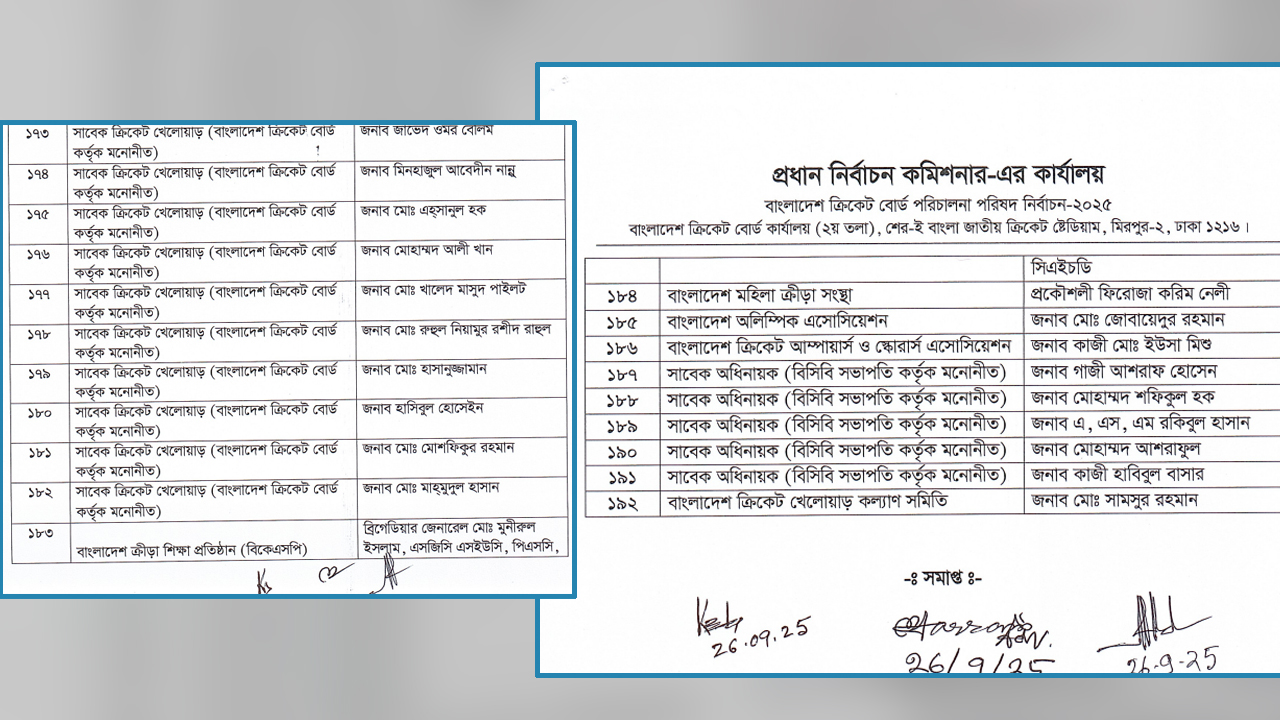 ১৭৩ সাবেক ক্রিকেট খেলোয়াড় (বাংলাদেশ ক্রিকেট বোর্ড জনাব জাভেদ ওমর বেলিম
কর্তৃক মনোনীত)
১৭৪ সাবেক ক্রিকেট খেলোয়াড় (বাংলাদেশ ক্রিকেট বোর্ড জনাব মিনহাজুল আবেদীন নান্নু
কর্তৃক মনোনীত)
১৭৫ সাবেক ক্রিকেট খেলোয়াড় (বাংলাদেশ ক্রিকেট বোর্ড জনাব মোঃ এহ্সানুল হক
কর্তৃক মনোনীত)
১৭৬ সাবেক ক্রিকেট খেলোয়াড় (বাংলাদেশ ক্রিকেট বোর্ড জনাব মোহাম্মদ আলী খান
কর্তৃক মনোনীত)
১৭৭ সাবেক ক্রিকেট খেলোয়াড় (বাংলাদেশ ক্রিকেট বোর্ড জনাব মোঃ খালেদ মাসুদ পাইলট
কর্তৃক মনোনীত)
১৭৮ সাবেক ক্রিকেট খেলোয়াড় (বাংলাদেশ ক্রিকেট বোর্ড জনাব মোঃ রুহুল নিয়ামুর রশীদ রাহুল
কর্তৃক মনোনীত)
১৭৯ সাবেক ক্রিকেট খেলোয়াড় (বাংলাদেশ ক্রিকেট বোর্ড জনাব মোঃ হাসানুজ্জামান
কর্তৃক মনোনীত)
১৮০ সাবেক ক্রিকেট খেলোয়াড় (বাংলাদেশ ক্রিকেট বোর্ড জনাব হাসিবুল হোসেইন
কর্তৃক মনোনীত)
১৮১ সাবেক ক্রিকেট খেলোয়াড় (বাংলাদেশ ক্রিকেট বোর্ড জনাব মোঃ মোশফিকুর রহমান
কর্তৃক মনোনীত)
১৮২ সাবেক ক্রিকেট খেলোয়াড় (বাংলাদেশ ক্রিকেট বোর্ড জনাব মোঃ মাহ্মুদুল হাসান
কর্তৃক মনোনীত)
১৮৩ বাংলাদেশ ক্রীড়া শিক্ষা প্রতিষ্ঠান (বিকেএসপি) ব্রিগেডিয়ার জেনারেল মোঃ মুনীরুল
ইসলাম, এসজিসি এসইউসি, পিএসসি,
প্রধান নির্বাচন কমিশনার-এর কার্যালয়
বাংলাদেশ ক্রিকেট বোর্ড পরিচালনা পরিষদ নির্বাচন-২০২৫
বাংলাদেশ ক্রিকেট বোর্ড কার্যালয় (২য় তলা), শের-ই বাংলা জাতীয় ক্রিকেট ষ্টেডিয়াম, মিরপুর-২, ঢাকা ১২১৬।
সিএইচডি
১৮৪ বাংলাদেশ মহিলা ক্রীড়া সংস্থা প্রকৌশলী ফিরোজা করিম নেলী
১৮৫ বাংলাদেশ অলিম্পিক এসোসিয়েশন জনাব মোঃ জোবায়েদুর রহমান
১৮৬ বাংলাদেশ ক্রিকেট আম্পায়ার্স ও স্কোরার্স এসোসিয়েশন জনাব কাজী মোঃ ইউসা মিশু
১৮৭ সাবেক অধিনায়ক (বিসিবি সভাপতি কর্তৃক মনোনীত) জনাব গাজী আশরাফ হোসেন
১৮৮ সাবেক অধিনায়ক (বিসিবি সভাপতি কর্তৃক মনোনীত) জনাব মোহাম্মদ শফিকুল হক
১৮৯ সাবেক অধিনায়ক (বিসিবি সভাপতি কর্তৃক মনোনীত) জনাব এ, এস, এম রকিবুল হাসান
১৯০ সাবেক অধিনায়ক (বিসিবি সভাপতি কর্তৃক মনোনীত) জনাব মোহাম্মদ আশরাফুল
১৯১ সাবেক অধিনায়ক (বিসিবি সভাপতি কর্তৃক মনোনীত) জনাব কাজী হাবিবুল বাসার
১৯২ বাংলাদেশ ক্রিকেট খেলোয়াড় কল্যাণ সমিতি জনাব মোঃ সামসুর রহমান
-ঃ সমাপ্ত ঃ-
26.09.25
26/9/25
26-9-25